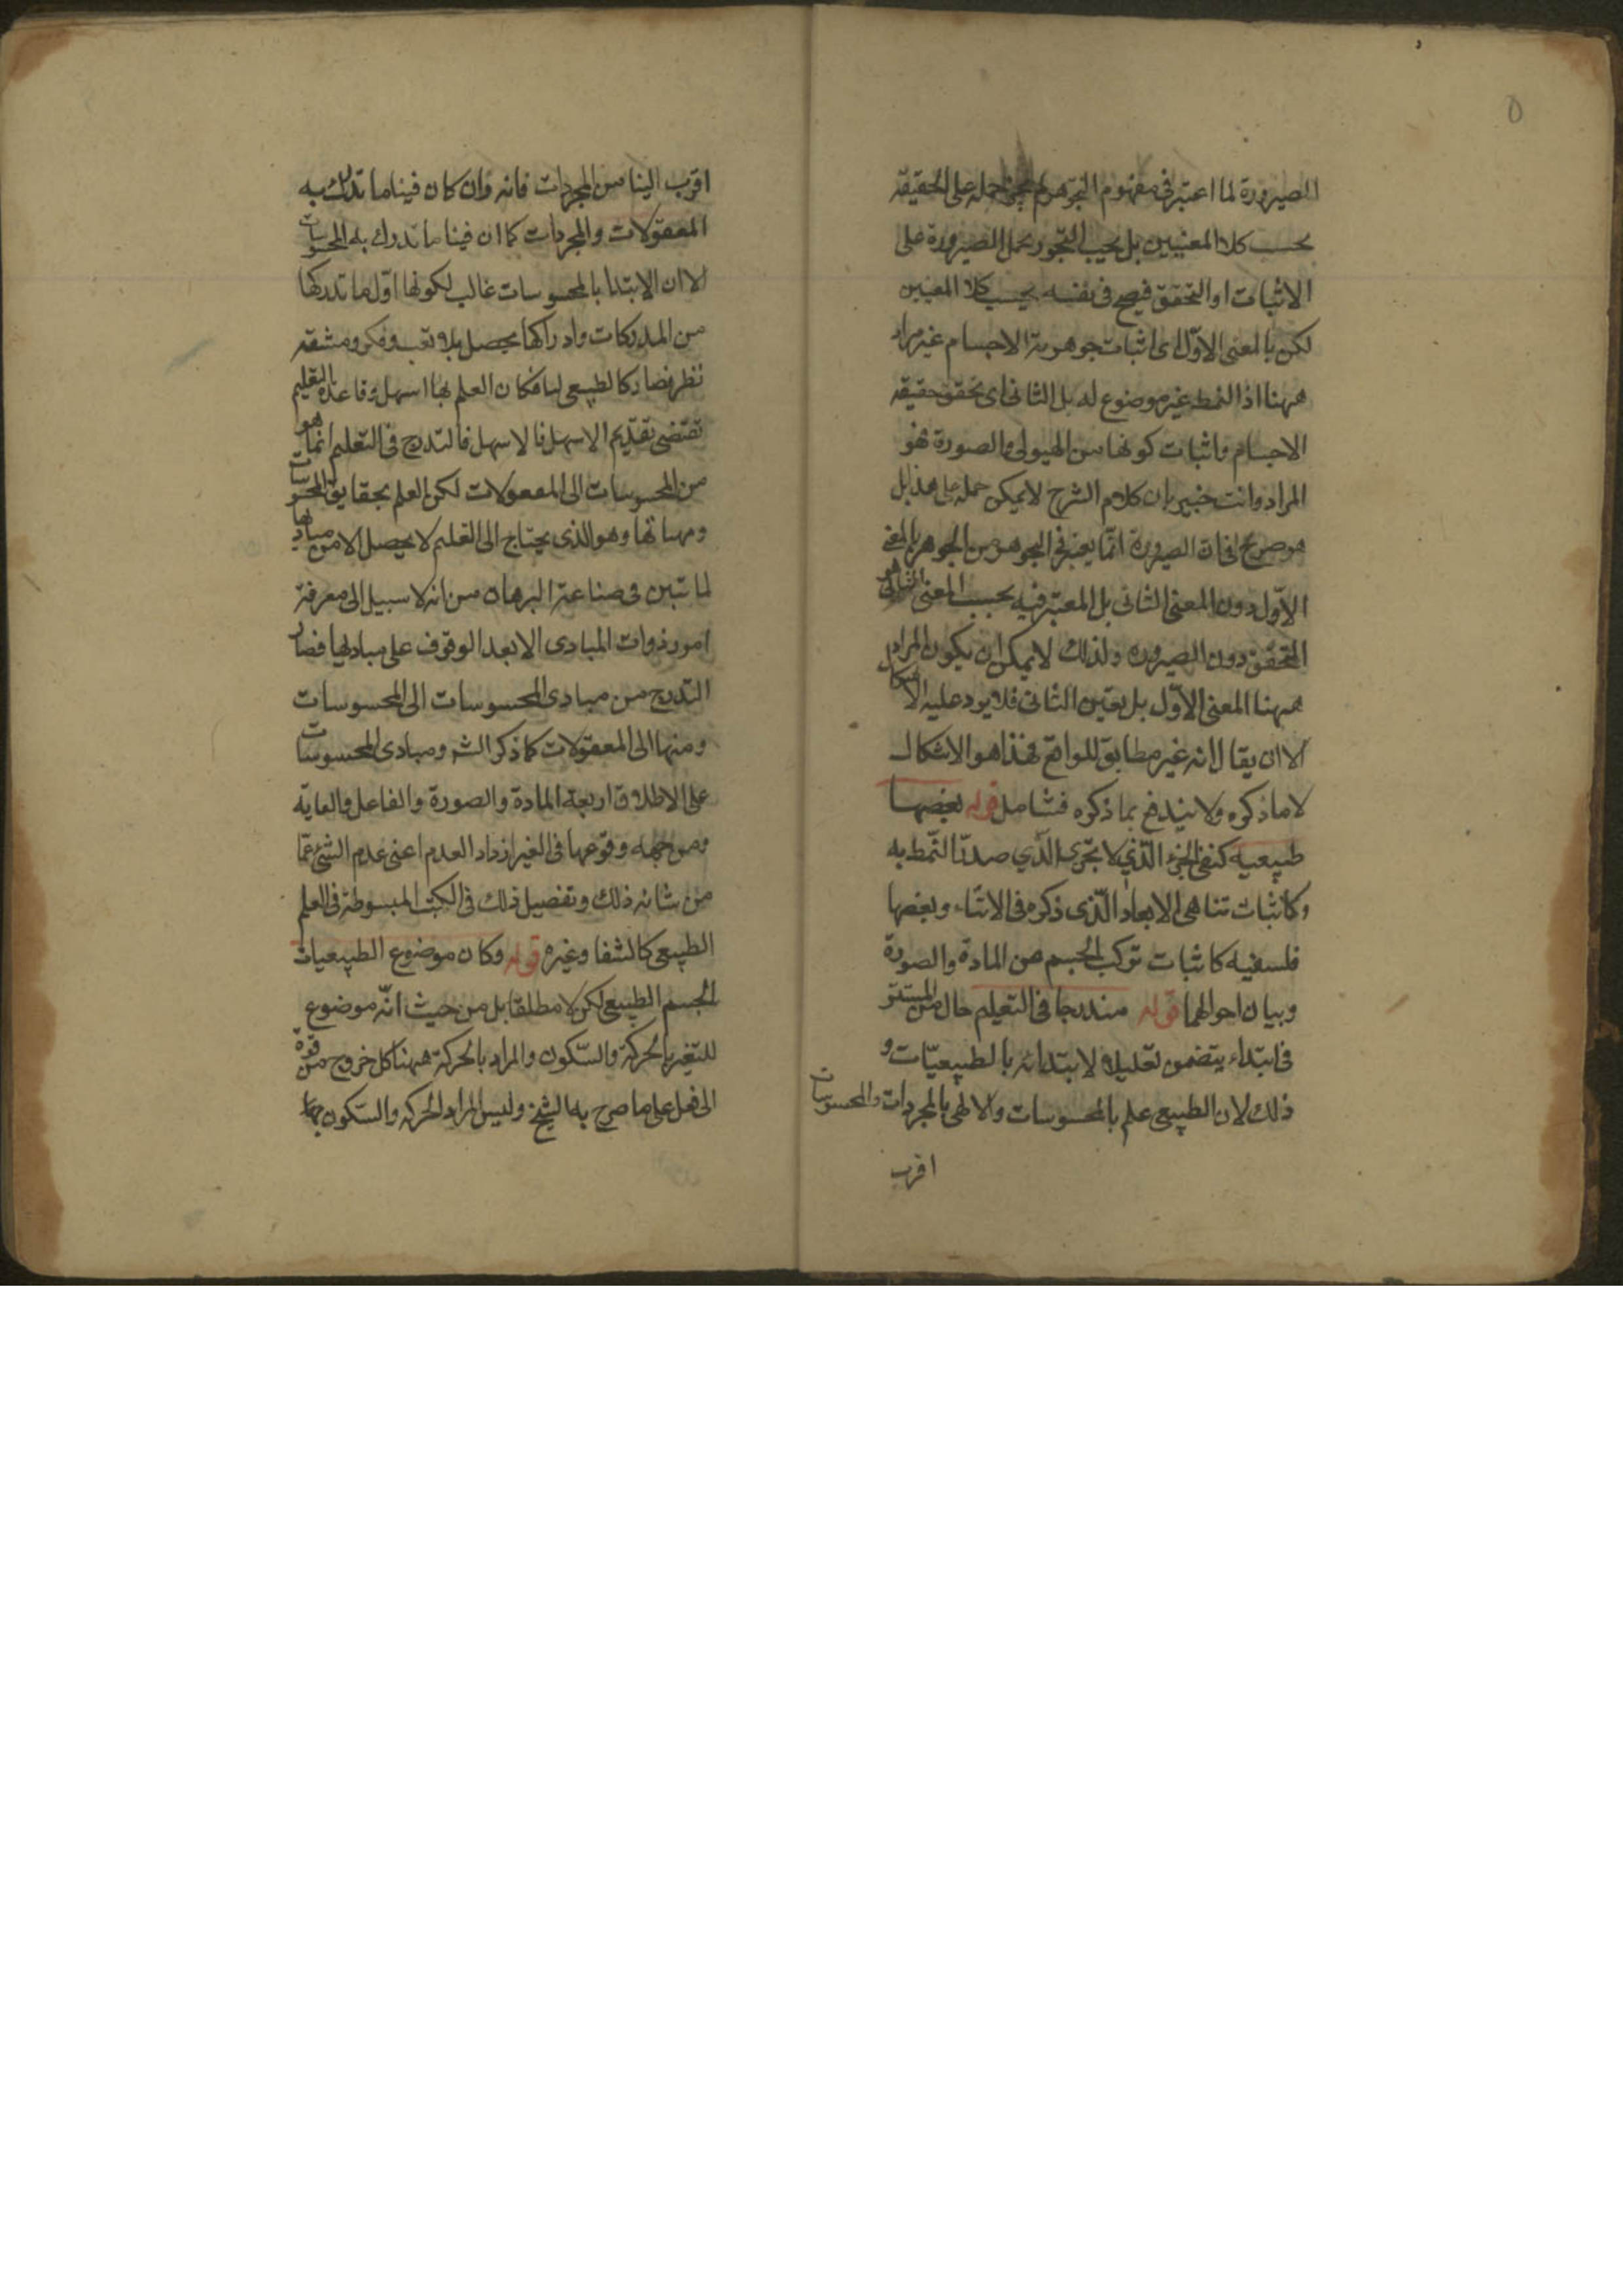 الصيرورة لما اعتبر في مفهوم التجوهر لم يجز حمله على الحقيقة
بحسب كلا المعنيين بل يجب التجوز بحمل الصيرورة على
الاثبات او التحقق فيصح في نفسه بحسب كلا المعنيين
لكن بالمعنى الاول اى اثبات جوهرية الاجسام غير مراد
ههنا اذ النمط غير موضوع له بل الثانى اى تحقق حقيقة
الاجسام واثبات كونها من الهيولى والصورة فهو
المراد وانت خبير بان كلام الشرح لا يمكن حمله على هذا بل
هو صريح فى ان الصيرورة انما يعتبر فى التجوهر من الجوهر بالمعنى
الاول دون المعنى الثانى بل المعتبر فيه بحسب المعنى الثانى هو
التحقق دون الصيرورة ولذلك لا يمكن ان يكون المراد
ههنا المعنى الاول بل يتعين الثانى فلا يرد عليه الاشكال
الا ان يقال انه غير مطابق للواقع فهذا هو الاشكال
لا ما ذكره ولا يندفع بما ذكره فتامل قوله بعضها
طبيعية كنفى الجزء الذي لا يتجزى الذي صدر النمط به
وكاثبات تناهى الابعاد الذى ذكره فى الاثناء وبعضها
فلسفية كاثبات تركب الجسم من المادة والصورة
وبيان احوالهما قوله مندرجا فى التعليم حال من المستتر
فى ابتداء يتضمن تعليلا لابتدائه بالطبيعيات و
ذلك لان الطبيعى علم بالمحسوسات والالهى بالمجردات والمحسوسات
اقرب
اقرب الينا من المجردات فانه وان كان فينا ما تدرك به
المعقولات والمجردات كما ان فينا ما ندرك به المحسوسات
الا ان الابتدا بالمحسوسات غالب لكونها اول ما ندركها
من المدركات وادراكها يحصل بلا تعب وفكر ومشقة
نظر فصار كالطبيعى لنا فكان العلم بها اسهل وقاعدة التعليم
تقتضى تقديم الاسهل فالاسهل فالتدرج فى التعليم انما هو
من المحسوسات الى المعقولات لكن العلم بحقايق المحسوسات
ومهياتها وهو الذى يحتاج الى التعليم لا يحصل الا من مباديها
لما تبين فى صناعة البرهان من انه لا سبيل الى معرفة
امور ذوات المبادى الا بعد الوقوف على مباديها فصار
التدرج من مبادى المحسوسات الى المحسوسات
ومنها الى المعقولات كما ذكر الشه ومبادى المحسوسات
على الاطلاق اربعة المادة والصورة والفاعل والغاية
ومن جهة وقوعها فى التغير ازداد العدم اعنى عدم الشئ عما
من شانه ذلك وتفصيل ذلك فى الكتب المبسوطة فى العلم
الطبيعى كالشفا وغيره قوله وكان موضوع الطبيعيات
الجسم الطبيعى لكن لا مطلقا بل من حيث انه موضوع
للتغير بالحركة والسكون والمراد بالحركة ههنا كل خروج من قوة
الى فعل على ما صرح به الشيخ وليس المراد الحركة والسكون